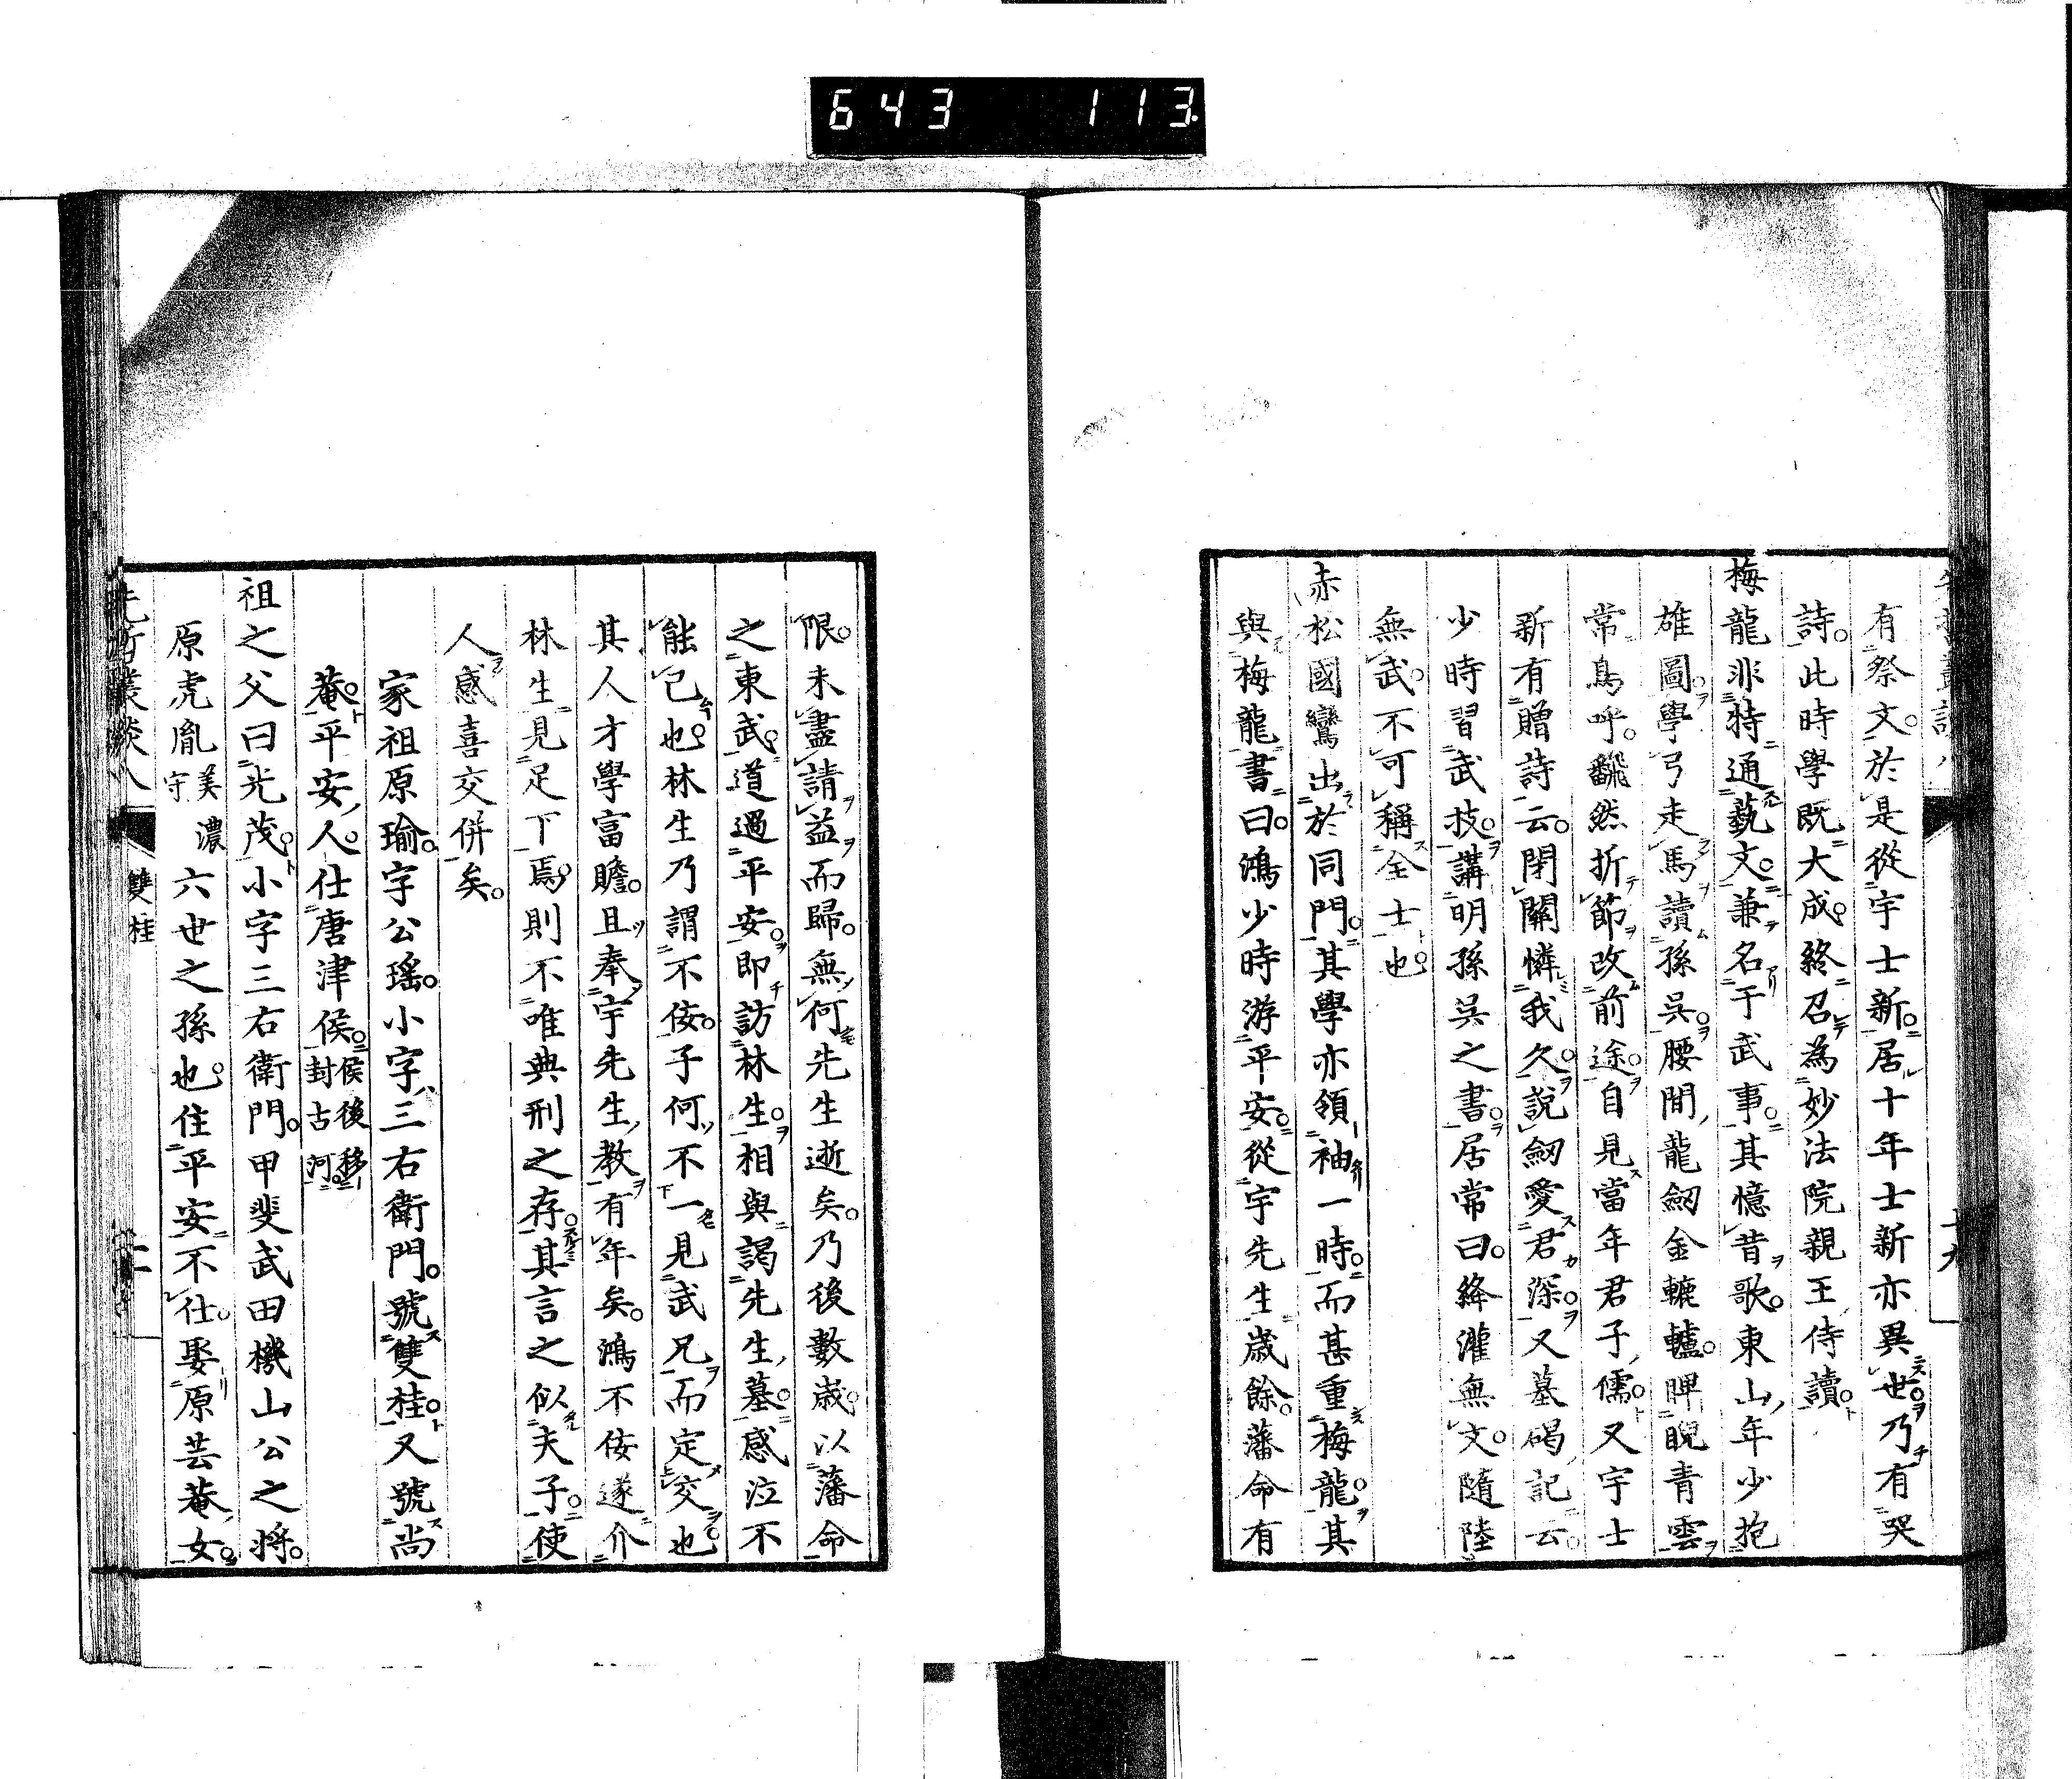 643 113
有祭文。於是從宇士新。居十年士新亦異世。乃有哭
詩。此時學既大成。終召為妙法院親王侍讀。
梅龍非特通藝文。兼名于武事。其憶昔歌。東山年少抱
雄圖。學弓走馬讀孫吳。腰間龍劒金轆轤。睥睨青雲
常鳥呼。翻然折節改前途。自見當年君子儒。又宇士
新有贈詩云。閉關憐我久。說劒愛君深。又墓碣記云。
少時習武技。講明孫吳之書。居常曰。絳灌無文。隨陸
無武。不可稱全士也。
赤松國鸞出於同門。其學亦領袖一時。而甚重梅龍。其
與梅龍書曰。鴻少時游平安。從宇先生歲餘。藩命有
限。未盡請益而歸。無何先生逝矣。乃後數歲。以藩命
之東武。道過平安。即訪林生。相與謁先生墓。感泣不
能已也。林生乃謂不佞。子何不一見武兄而定交也。
其人才學富贍。且奉宇先生教有年矣。鴻不佞遂介
林生見足下焉。則不唯典刑之存。其言之似夫子。使
人感喜交併矣。
家祖原瑜。字公瑤。小字三右衛門。號雙桂。又號尚
菴。平安人。仕唐津侯。侯後移封古河。
祖之父曰光茂。小字三右衛門。甲斐武田機山公之將。
原虎胤美濃守六世之孫也。住平安不仕。娶原芸菴女。
先哲叢談八
雙桂